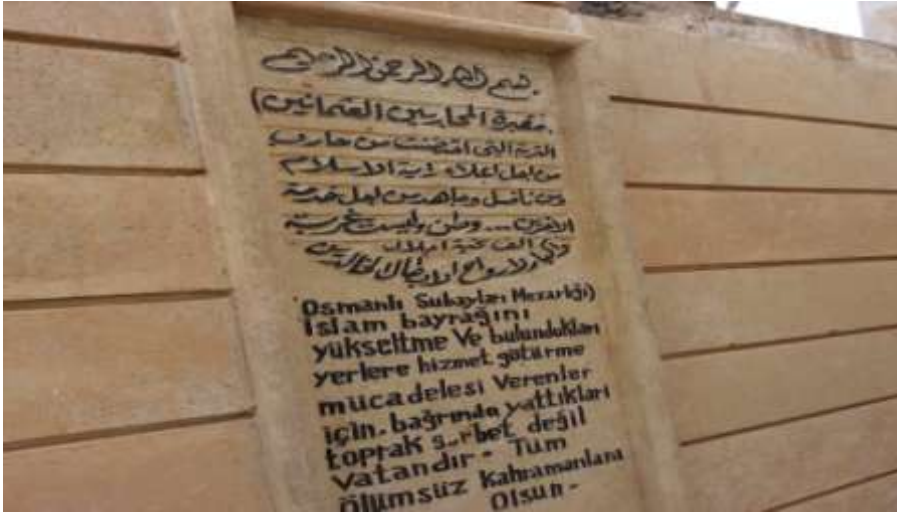 بسم الله الرحمن الرحيم
مقبرة المحاربين العثمانيين)
التربة التي احتضنت من حارب
من اجل اعلاء راية الاسلام
ومن ناضل وجاهد من اجل خدمة
الآخرين ... وطن وليست غربة
الف تحية اجلال
لارواح الابطال الخالدين
Osmanlı Subayları Mezarlığı)
İslam bayrağını
yükseltme Ve bulundukları
yerlere hizmet götürme
mücadelesi Verenler
için. bağrında yattıkları
toprak gurbet değil
Vatandır - Tüm
Ölümsüz Kahramanlara
Olsun -